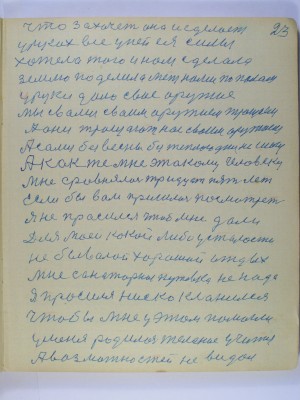 23
что захочет она и сделает
у руках все у ней ея силы
хотела того и ном сделала
землю поделила метнами по пекам
у руки дало свае аружие
мы свали сваим аружием трощени
А они трощат нас своим аружием
А сами бы весны бы теплова дни не сниму
А как же мне этакому человеку
мне сровнялоя тридцат пят лет
если бы вам присилоя посмотрет
Я не прасился чтоб мне дали
для моей какой либо усталости
не бывалой хорошай отдых
мне санаторная путёвка не нада
Я просил низко кланился
чтобы мне у этом помагли
у меня родилос желание учится
А возможностей не видал